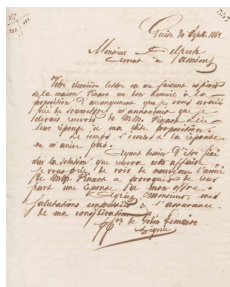 Guise 30 Sept. 1882
Monsieur Delpech
avocat à
Votre dernière lettre en me faisant espérer
de la maison Pinart un bon accueil à la
proposition d'arrangement que je vous avais
prié de soumettre, m'annonçait que je
devais recevoir de MM. Pinart
leur réponse à ma dite proposition.
Le temps s'écoule et la réponse
ne m'arrive pas.
Ayant besoin d'être fixé
sur la solution que recevra cette affaire
je vous prie de voir de nouveau l'année
de MM. Pinart à provoquer de leur
part une réponse à mon offre.
Agréez monsieur, mes
salutations empressées & l'assurance
de ma considération
Godin Lemaire